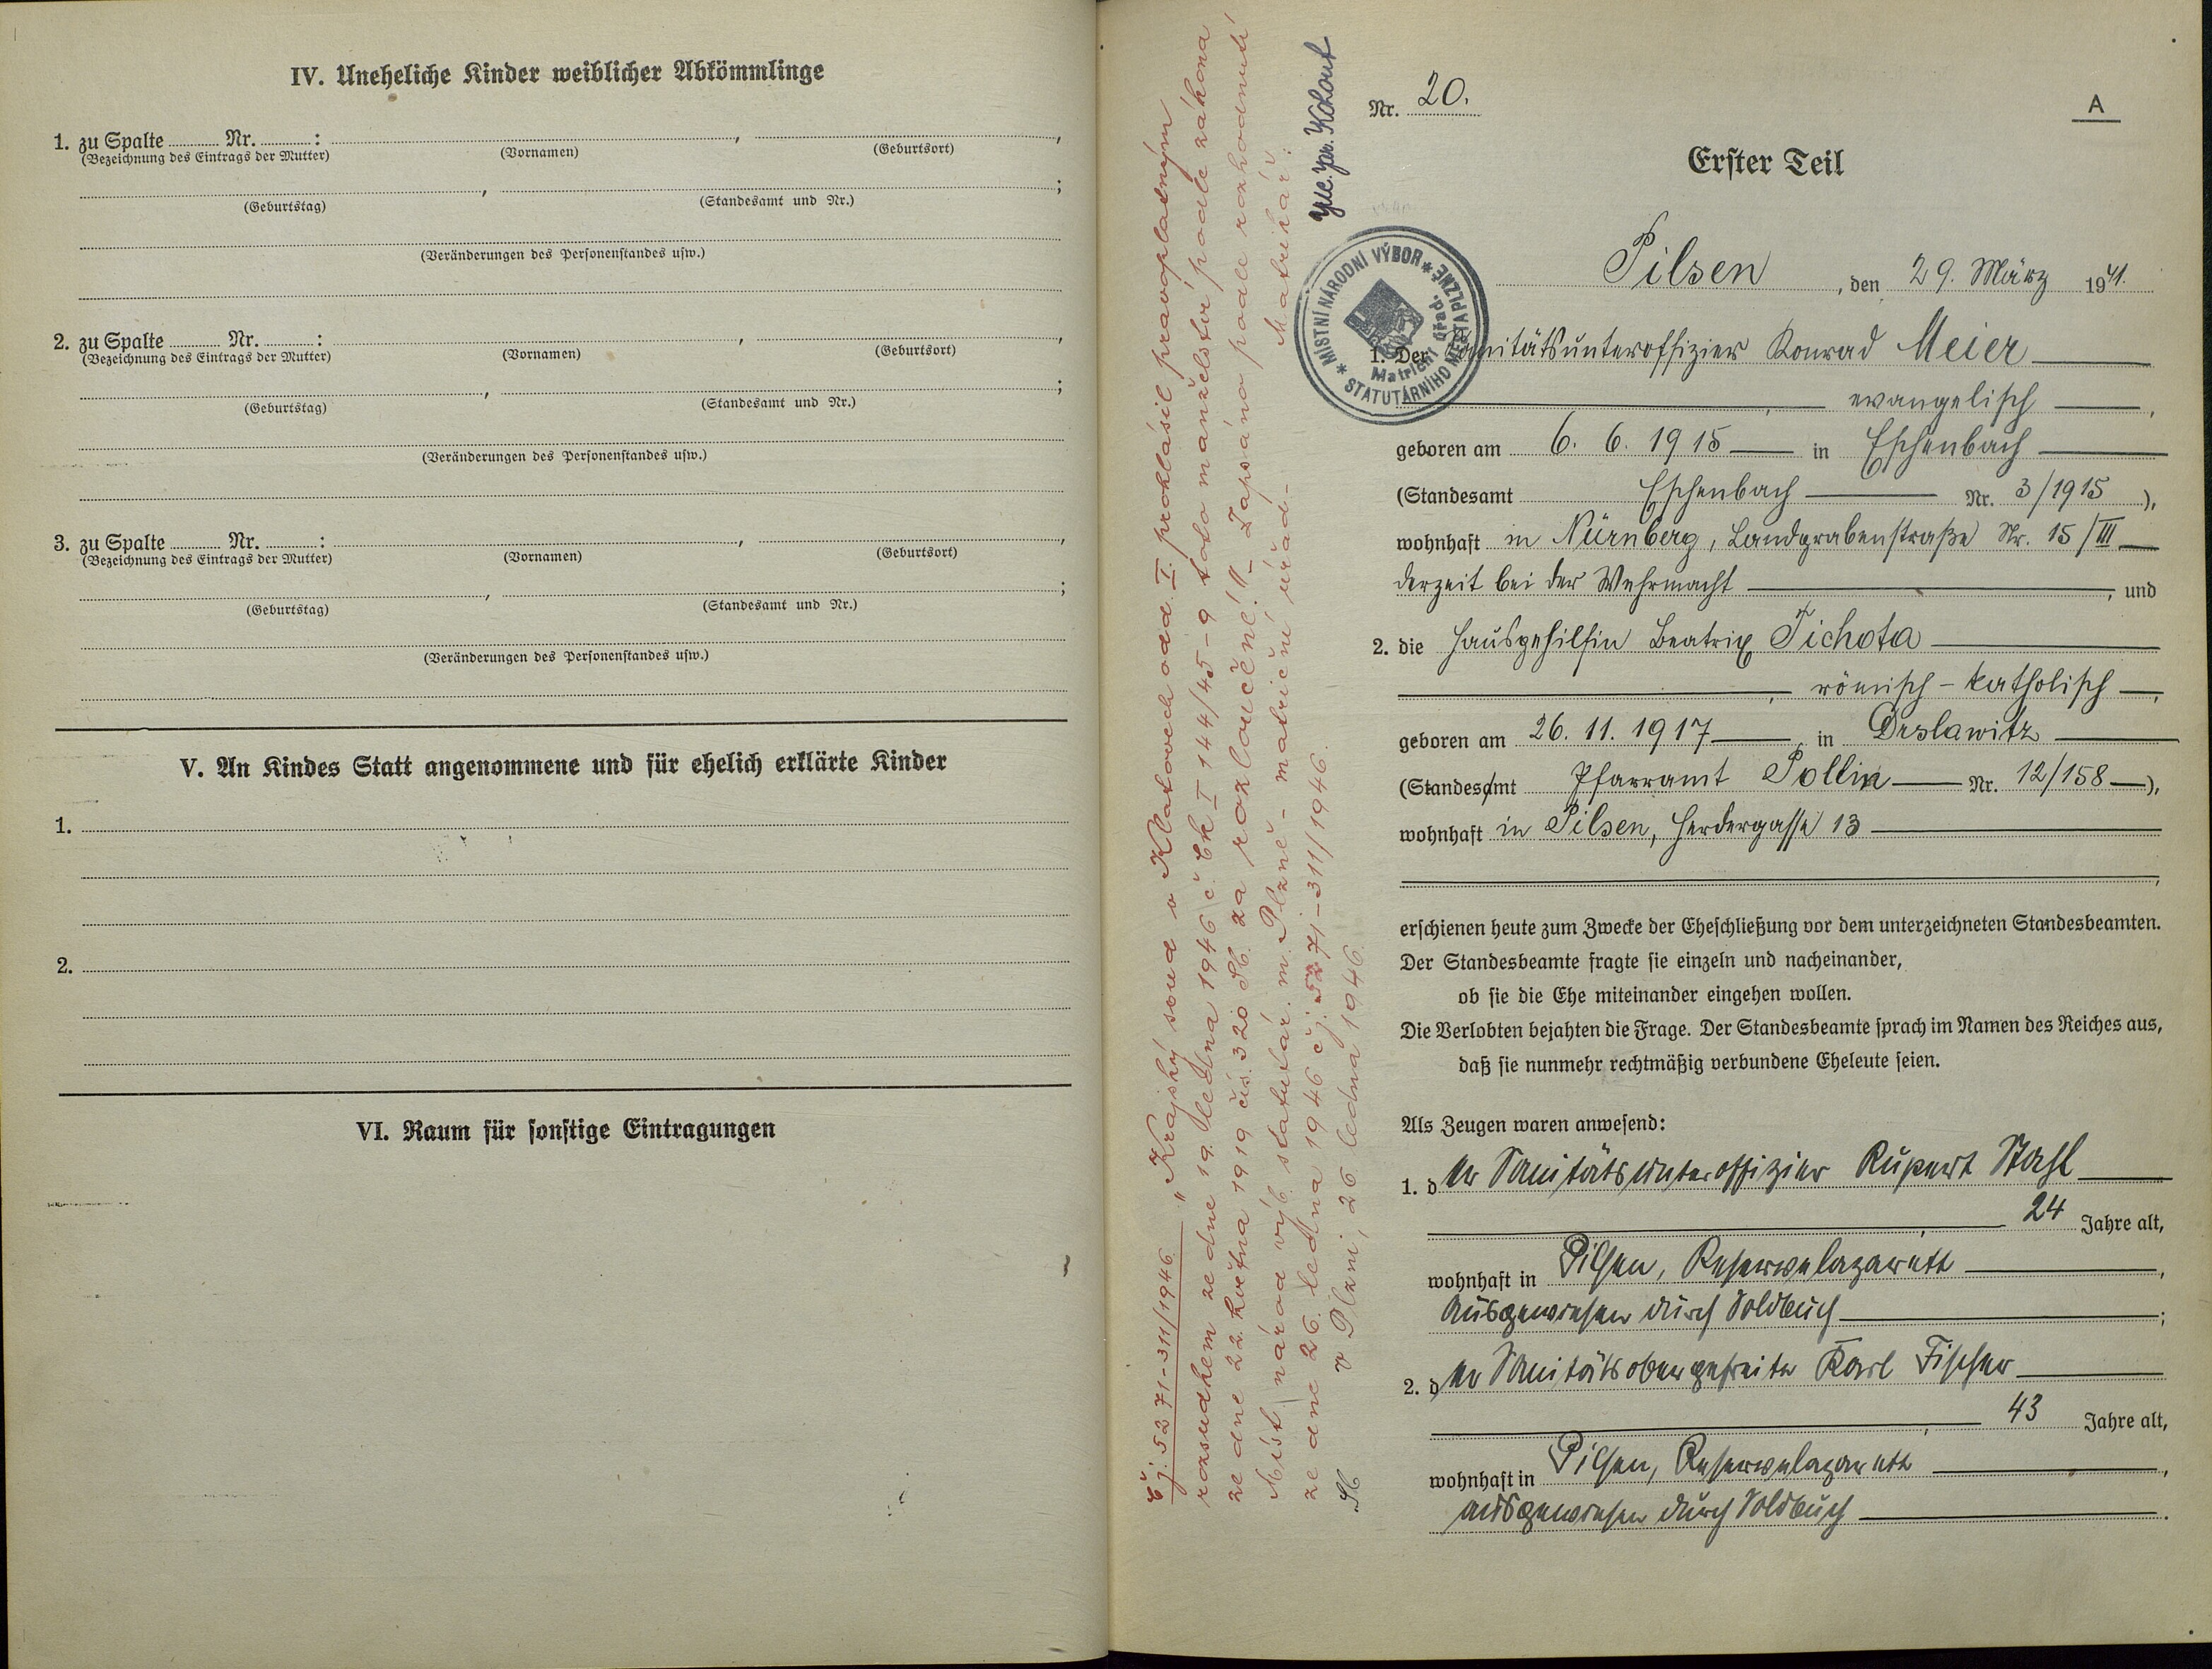 IV. Uneheliche Kinder weiblicher Abkömmlinge
1. zu Spalte ......... Nr. .........: ........., .........,
(Bezeichnung des Eintrags der Mutter) (Vornamen) (Geburtsort)
........., .........;
(Geburtstag) (Standesamt und Nr.)
(Veränderungen des Personenstandes usw.)
2. zu Spalte ......... Nr. .........: ........., .........,
(Bezeichnung des Eintrags der Mutter) (Vornamen) (Geburtsort)
........., .........;
(Geburtstag) (Standesamt und Nr.)
(Veränderungen des Personenstandes usw.)
3. zu Spalte ......... Nr. .........: ........., .........,
(Bezeichnung des Eintrags der Mutter) (Vornamen) (Geburtsort)
........., .........;
(Geburtstag) (Standesamt und Nr.)
(Veränderungen des Personenstandes usw.)
V. An Kindes Statt angenommene und für ehelich erklärte Kinder
1.
2.
VI. Raum für sonstige Eintragungen
Čj: 5271-311/1946 „Krajský soud v Klatovech odd. I. prohlásil pravoplatným
rozsudkem ze dne 19. ledna 1946 č. Ck I 144/45-9 toto manželství podle zákona
ze dne 22. května 1919 čís. 320 Sb. za rozloučené." Zapsáno podle rozhodnutí
Míst. národ. výb. statutár. m. Plzně - matriční úřad -
ze dne 26. ledna 1946 čj. 5271-311/1946. Matrikář:
V Plzni, 26. ledna 1946.
Kohout
MÍSTNÍ NÁRODNÍ VÝBOR * STATUTÁRNÍHO MĚSTA PLZNĚ *
Matriční úřad.
Nr. 20.
A
Erster Teil
Pilsen, den 29. März 1941.
1. Der Sanitätsunteroffizier Konrad Meier
, evangelisch,
geboren am 6. 6. 1915 in Eschenbach
(Standesamt Eschenbach Nr. 3/1915),
wohnhaft in Nürnberg, Landgrabenstraße Nr. 15/III
derzeit bei der Wehrmacht, und
2. die Hausgehilfin Beatrix Tichota
, römisch-katholisch,
geboren am 26. 11. 1917 in Drslawitz
(Standesamt Pfarramt Pollin Nr. 12/158),
wohnhaft in Pilsen, Herdergasse 13
,
erschienen heute zum Zwecke der Eheschließung vor dem unterzeichneten Standesbeamten.
Der Standesbeamte fragte sie einzeln und nacheinander,
ob sie die Ehe miteinander eingehen wollen.
Die Verlobten bejahten die Frage. Der Standesbeamte sprach im Namen des Reiches aus,
daß sie nunmehr rechtmäßig verbundene Eheleute seien.
Als Zeugen waren anwesend:
1. der Sanitätsunteroffizier Rupert Stahl
, 24 Jahre alt,
wohnhaft in Pilsen, Reservelazarett,
ausgewiesen durch Soldbuch;
2. der Sanitätsobergefreite Karl Fischer
, 43 Jahre alt,
wohnhaft in Pilsen, Reservelazarett,
ausgewiesen durch Soldbuch.